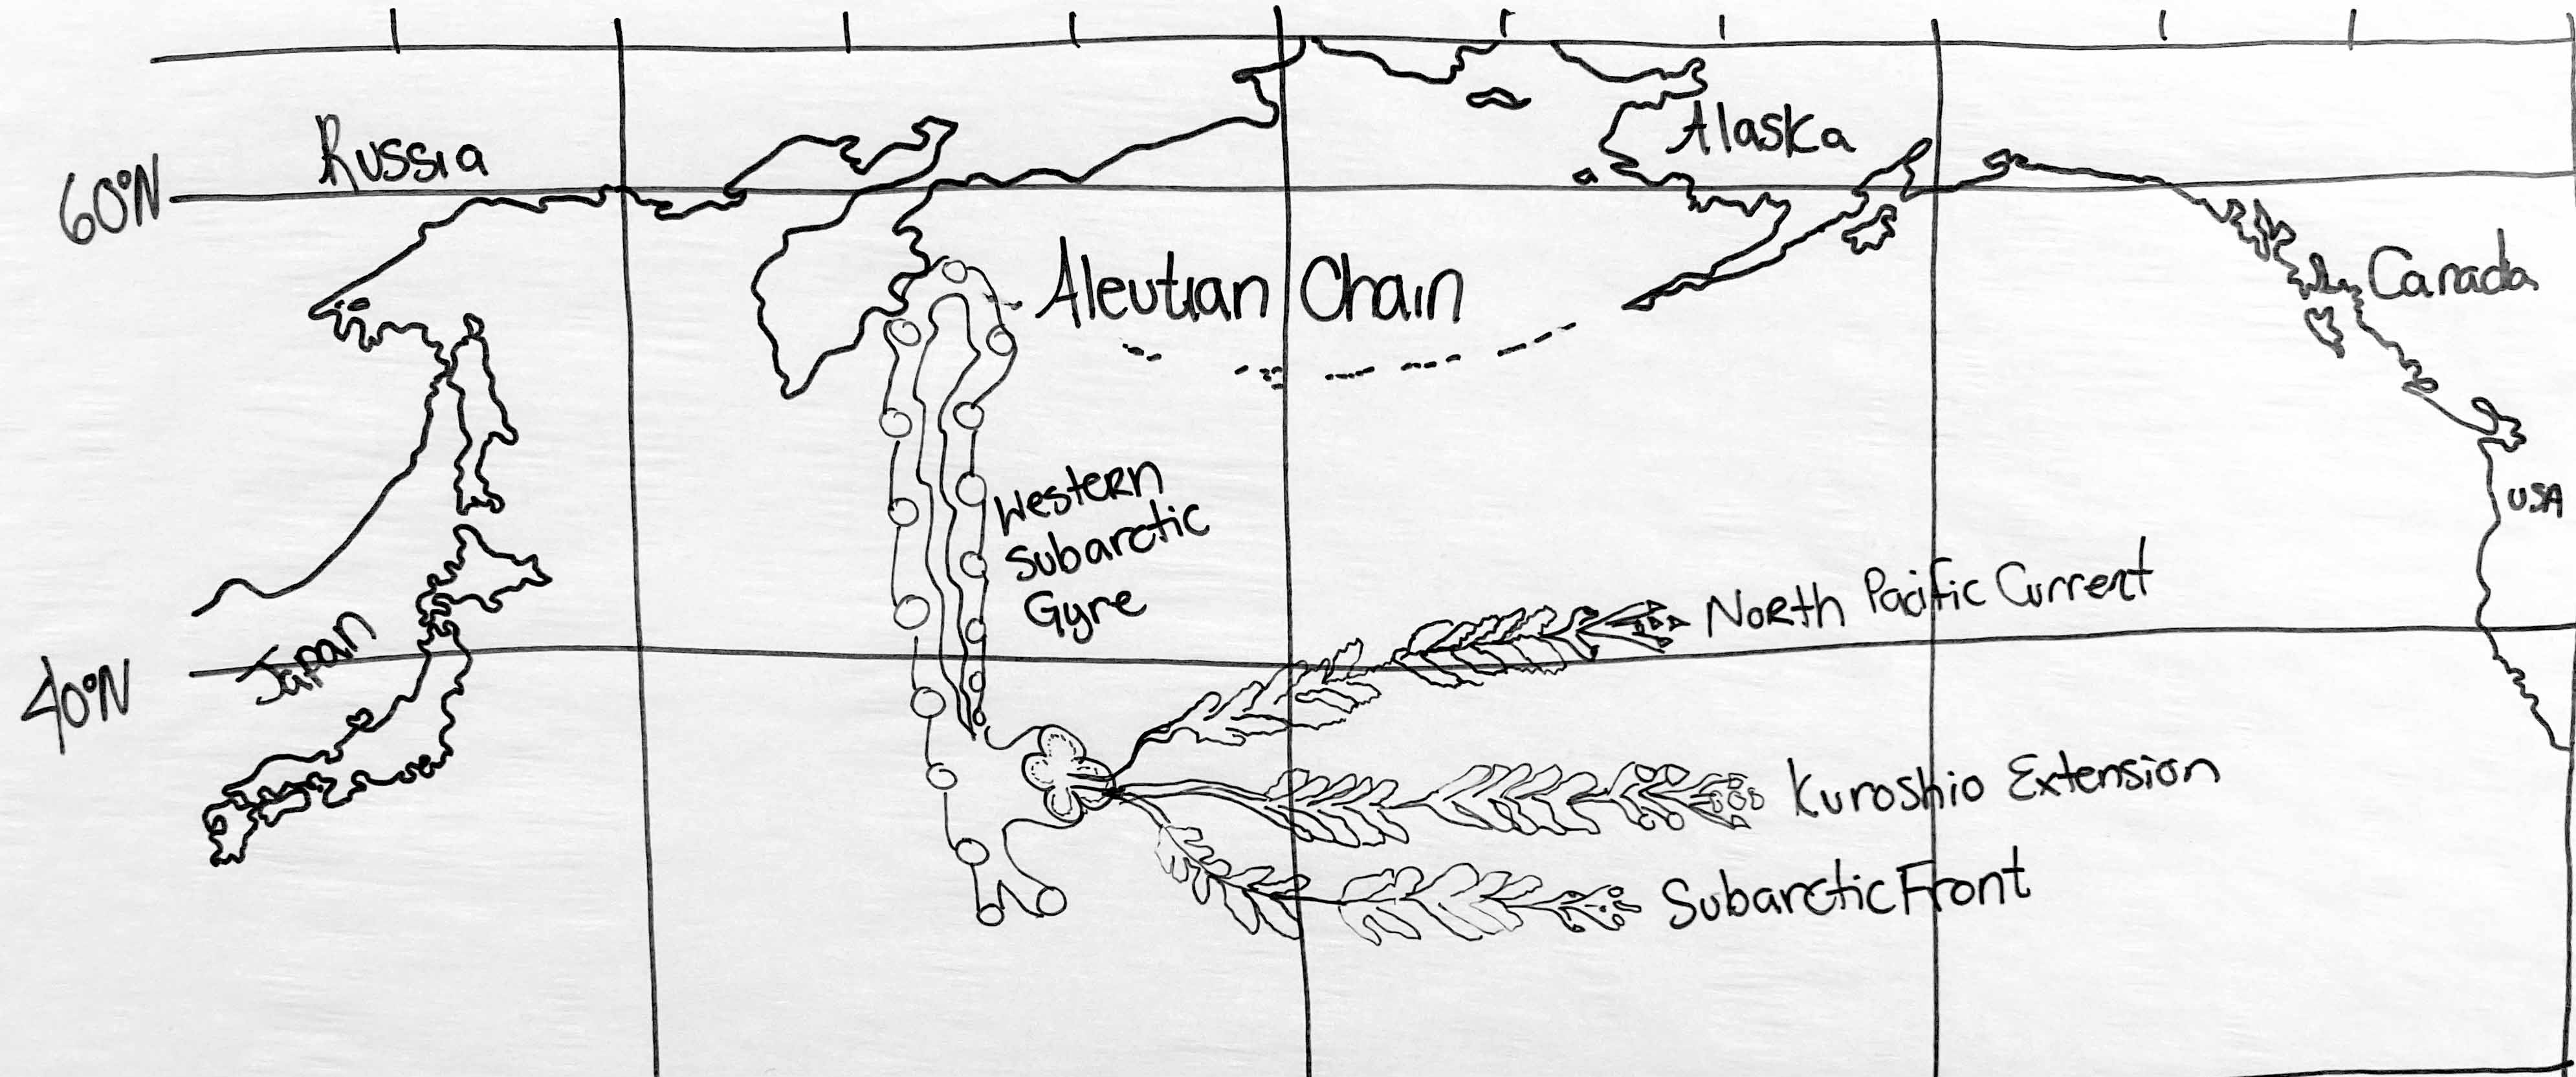 Russia
Alaska
60°N
Aleutian Chain
Canada
USA
Western
Subarctic
Gyre
North Pacific Current
Japan
40°N
Kuroshio Extension
Subarctic Front